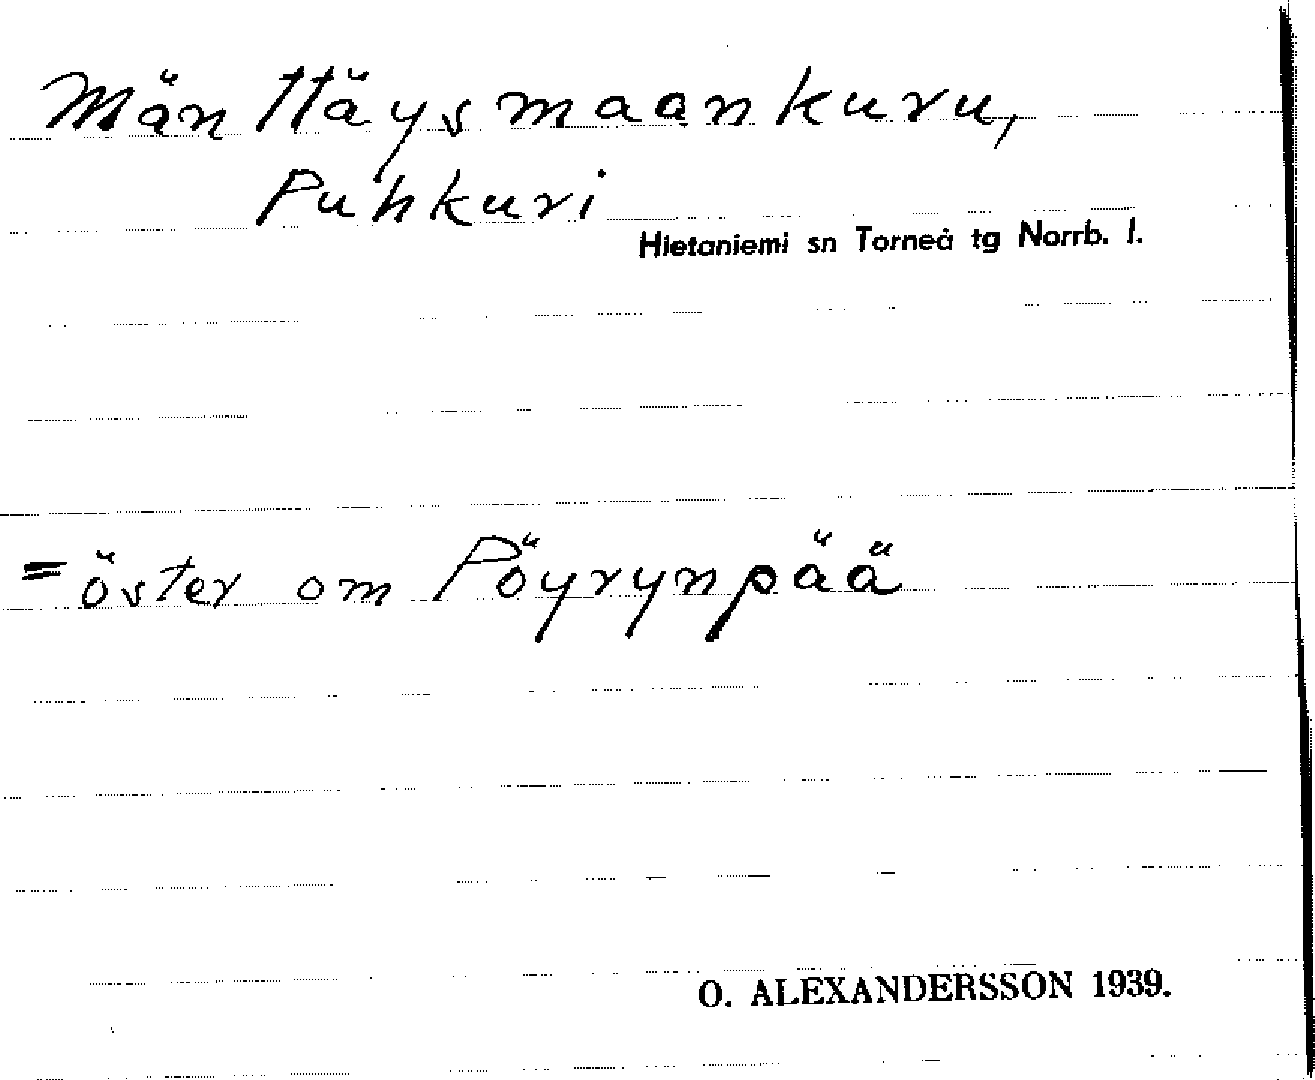 Mänttäysmaankuru,
Puhkuri
Hietaniemi sn Torneå tg Norrb. l.
= öster om Pöyrynpää
O. ALEXANDERSSON 1939.